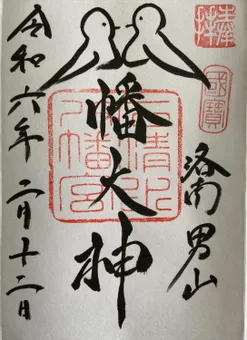 奉拝
國寶
洛南男山
八幡大神
石清水
八幡宮
令和六年二月十二日